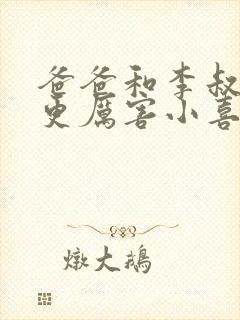 爸爸和李叔
更厲害小喜
燉大鵝